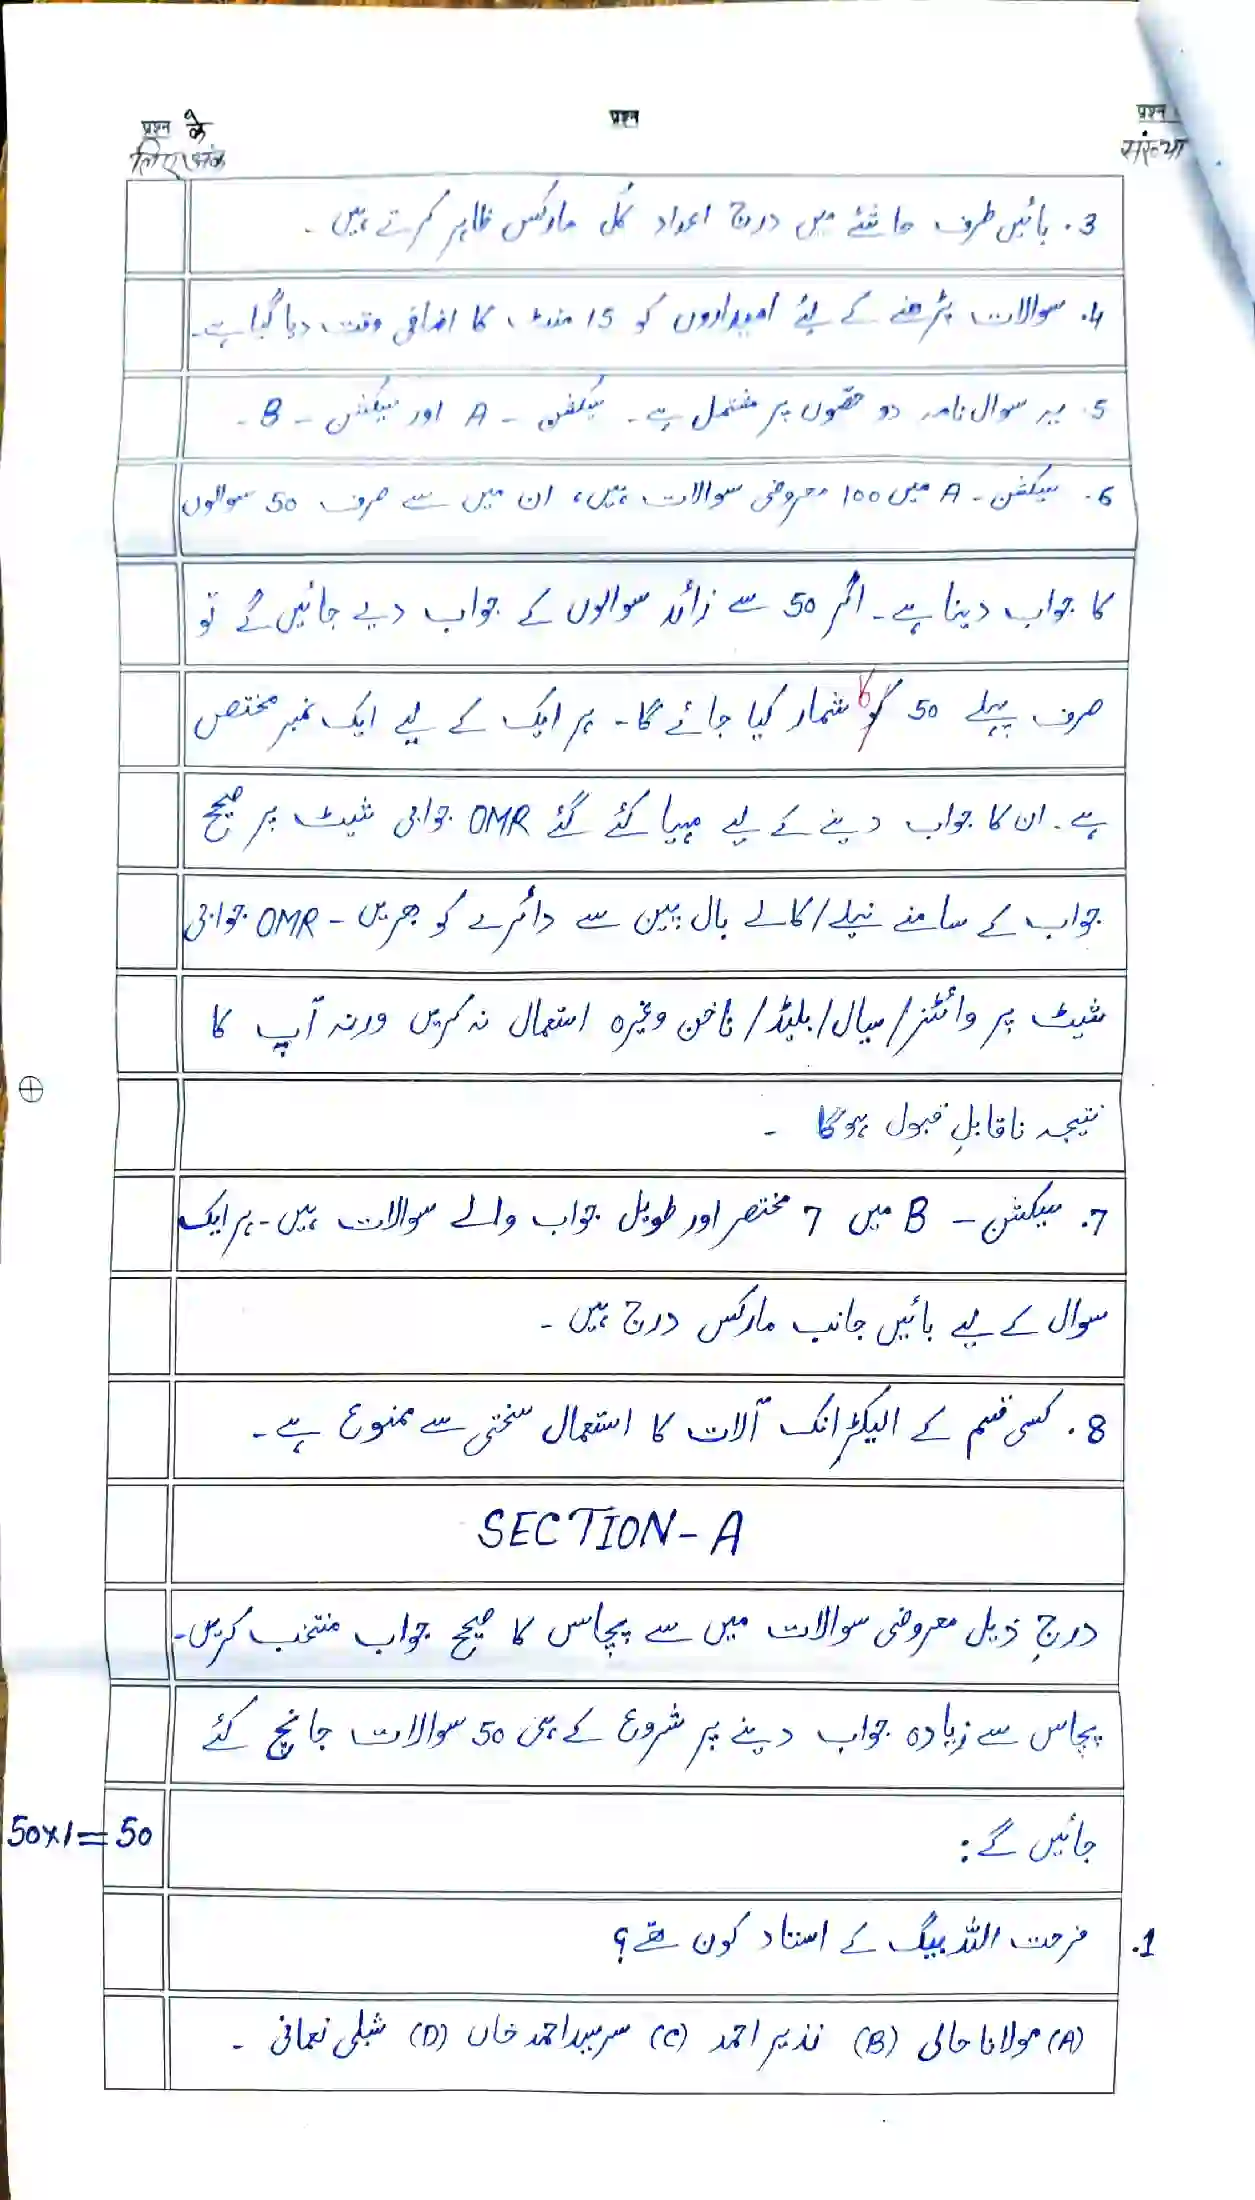 प्रश्न के
लिए अंक
प्रश्न
प्रश्न
संख्या
3. بائیں طرف حاشئے میں درج اعداد کُل مارکس ظاہر کرتے ہیں۔
4. سوالات پڑھنے کے لئے امیدواروں کو 15 منٹ کا اضافی وقت دیا گیا ہے۔
5. یہ سوال نامہ دو حصّوں پر مشتمل ہے۔ سیکشن - A اور سیکشن - B -
6. سیکشن - A میں 100 معروضی سوالات ہیں، ان میں سے صرف 50 سوالوں
کا جواب دینا ہے۔ اگر 50 سے زائد سوالوں کے جواب دیے جائیں گے تو
صرف پہلے 50 کا شمار کیا جائے گا۔ ہر ایک کے لیے ایک نمبر مختص
ہے۔ ان کا جواب دینے کے لیے مہیا کئے گئے OMR جوابی شیٹ پر صحیح
جواب کے سامنے نیلے/کالے بال پین سے دائرے کو بھریں - OMR جوابی
شیٹ پر وائٹنر/سیال/بلیڈ/ناخن وغیرہ استعمال نہ کریں ورنہ آپ کا
نتیجہ ناقابلِ قبول ہوگا ۔
7. سیکشن - B میں 7 مختصر اور طویل جواب والے سوالات ہیں۔ ہر ایک
سوال کے لیے بائیں جانب مارکس درج ہیں ۔
8. کسی قسم کے الیکٹرانک آلات کا استعمال سختی سے ممنوع ہے۔
SECTION-A
درجِ ذیل معروضی سوالات میں سے پچاس کا صحیح جواب منتخب کریں۔
پچاس سے زیادہ جواب دینے پر شروع کے ہی 50 سوالات جانچ کئے
جائیں گے:
50×1=50
1. فرحت اللہ بیگ کے استاد کون تھے؟
(A) مولانا حالی (B) نذیر احمد (C) سرسید احمد خاں (D) شبلی نعمانی ۔